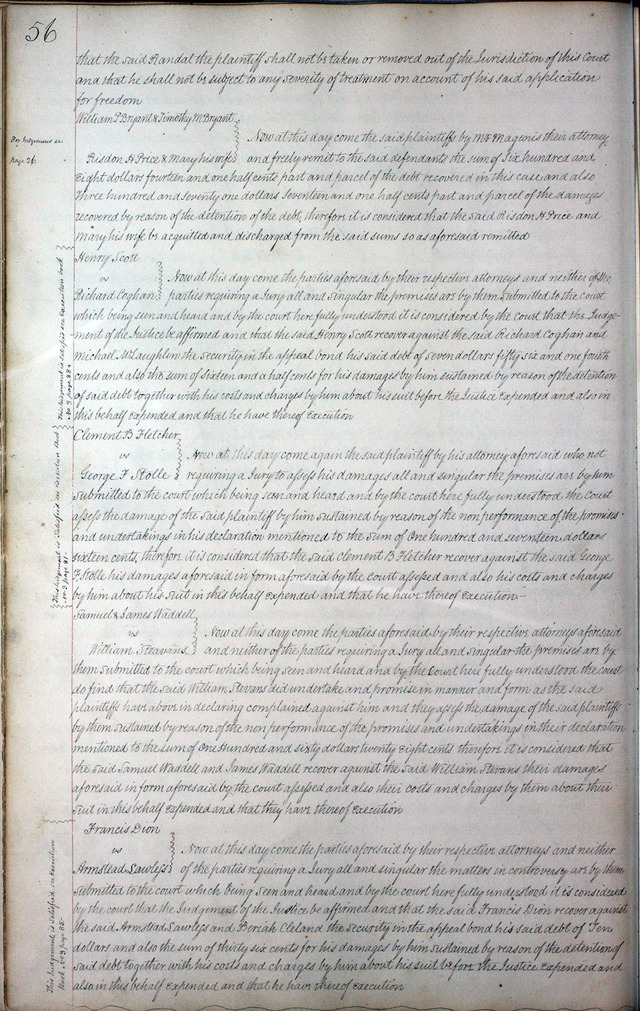 56
that the said Randal the plaintiff shall not be taken or removed out of the Jurisdiction of this Court
and that he shall not be subject to any severity of treatment on account of his said application
for freedom
William P Bryant & Timothy M Bryant
Now at this day come the said plaintiffs by Mr Magenis their attorney
For Judgement see
page 36
Risdon H Price & Mary his wife and freely remit to the said defendants the sum of Six hundred and
Eight dollars fourteen and one half cents part and parcel of the debt recovered in this case and also
Three hundred and seventy one dollars Seventeen and one half cents part and parcel of the damages
recovered by reason of the detention of the debt, therefore it is considered that the said Risdon H Price and
Mary his wife be acquitted and discharged from the said sums so as aforesaid remitted
Henry Scott
vs Now at this day come the parties aforesaid by their respective attorneys and neither of the
Richard Coghan parties requiring a Jury all and singular the premises are by them Submitted to the court
which being seen and heard and by the court here fully understood it is considered by the Court that the Judge-
ment of the Justice be affirmed and that the said Henry Scott recover against the said Richard Coghan and
Michael McLaughlin the security in the appeal bond his said debt of seven dollars fifty six and one fourth
cents and also the sum of sixteen and a half cents for his damages by him sustained by reason of the detention
of said debt together with his costs and charges by him about his suit before the Justice Expended and also in
this behalf Expended and that he have thereof Execution
This Judgement is Satisfied see Execution book
No 3 page 88
Clement B Fletcher
vs Now at this day come again the said plaintiff by his attorney aforesaid who not
George F Stolle requiring a Jury to assess his damages all and singular the premises are by him
Submitted to the court which being seen and heard and by the court here fully understood, the Court
assess the damage of the said plaintiff by him sustained by reason of the non performance of the promises
and undertakings in his declaration mentioned to the Sum of One hundred and seventeen dollars
sixteen cents, therefore it is considered that the said Clement B Fletcher recover against the said George
F Stolle his damages aforesaid in form aforesaid by the court assessed and also his costs and charges
by him about his suit in this behalf Expended and that he have thereof Execution
This Judgement is Satisfied see Execution Book
No 3 page 81
Samuel & James Waddell
vs Now at this day come the parties aforesaid by their respective attorneys aforesaid
William Stevans and neither of the parties requiring a Jury all and singular the premises are by
them submitted to the court which being seen and heard and by the Court here fully understood the court
do find that the said William Stevans did undertake and promise in manner and form as the said
plaintiffs have above in declaring complained against him and they assess the damage of the said plaintiffs
by them sustained by reason of the non performance of the promises and undertakings in their declaration
mentioned to the sum of One Hundred and sixty dollars twenty eight cents therefore it is considered that
the said Samuel Waddell and James Waddell recover against the said William Stevans their damages
aforesaid in form aforesaid by the court assessed and also their costs and charges by them about their
suit in this behalf expended and that they have thereof Execution
Francis Dion
vs Now at this day come the parties aforesaid by their respective attorneys and neither
Armstead Lawless of the parties requiring a Jury all and singular the matters in controversy are by them
Submitted to the court which being seen and heard and by the court here fully understood it is considered
by the court that the Judgement of the Justice be affirmed and that the said Francis Dion recover against
the said Armstead Lawless and Boriah Cleland the Security in the appeal bond his said debt of Ten
dollars and also the sum of thirty six cents for his damages by him sustained by reason of the detention of
said debt together with his costs and charges by him about his suit before the Justice Expended and
also in this behalf Expended and that he have thereof execution
This Judgement is Satisfied see Execution
Book No 3 page 85